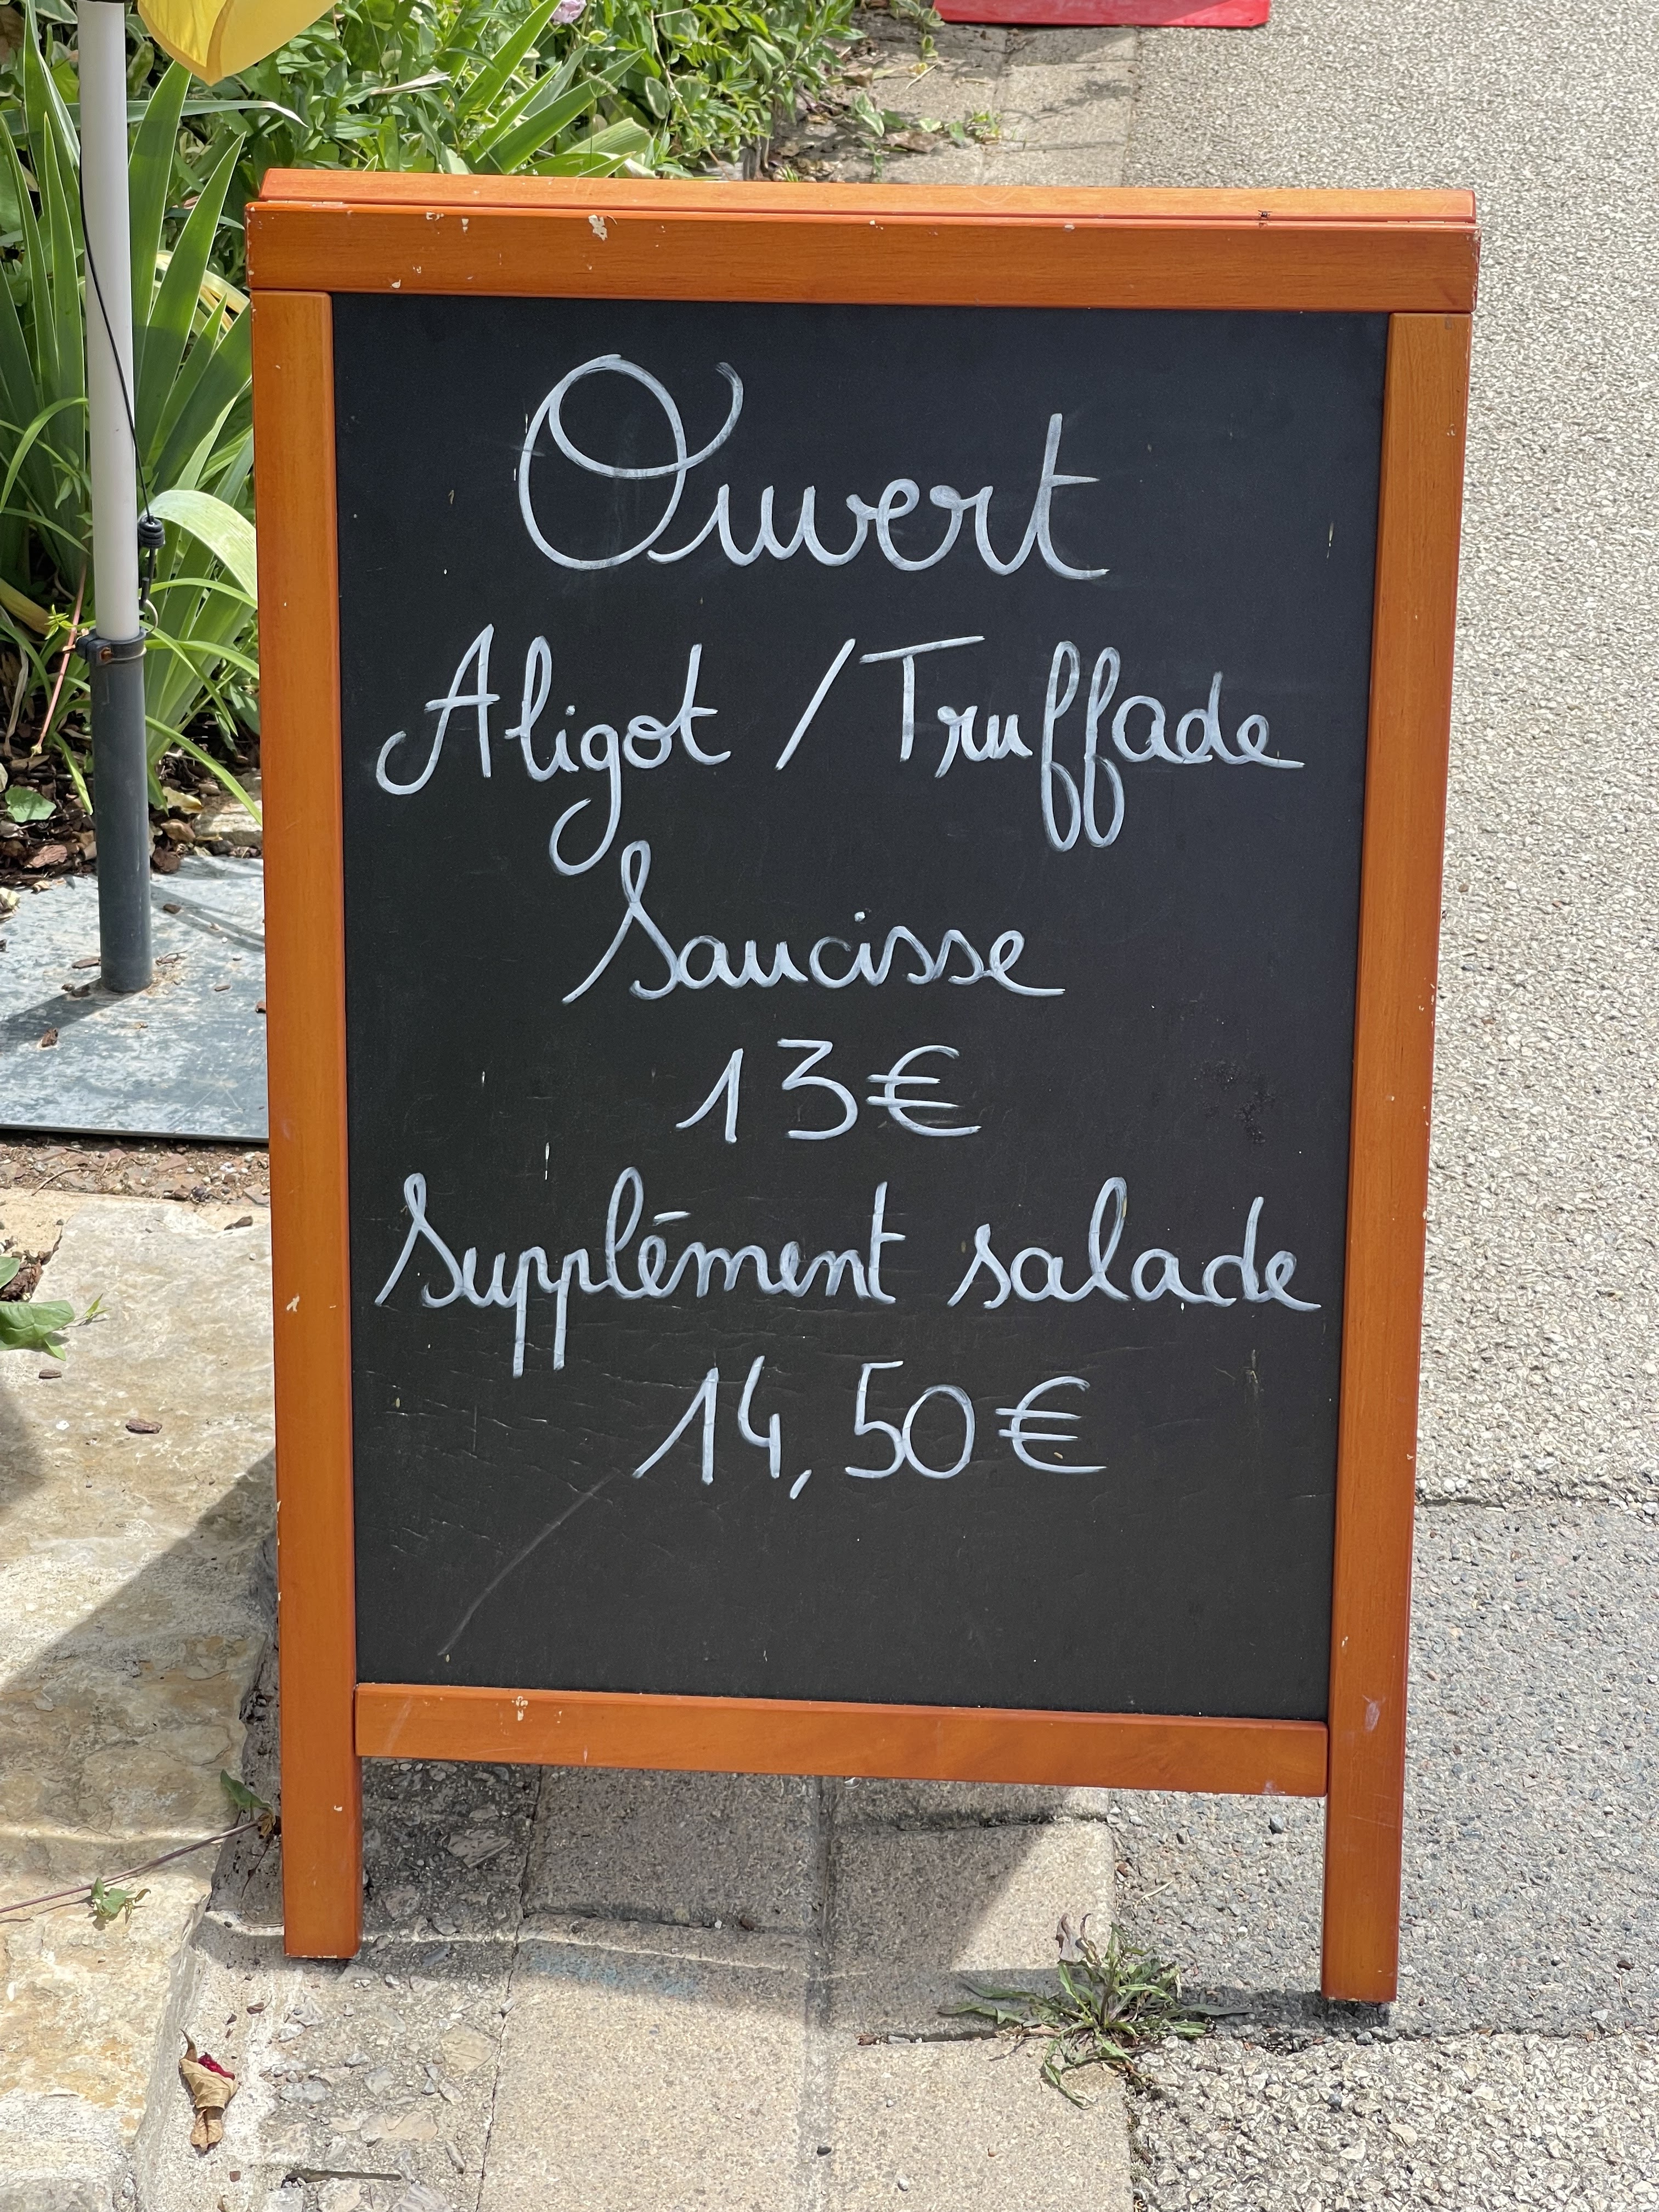 Ouvert
Aligot / Truffade
Saucisse
13€
Supplément salade
14,50€